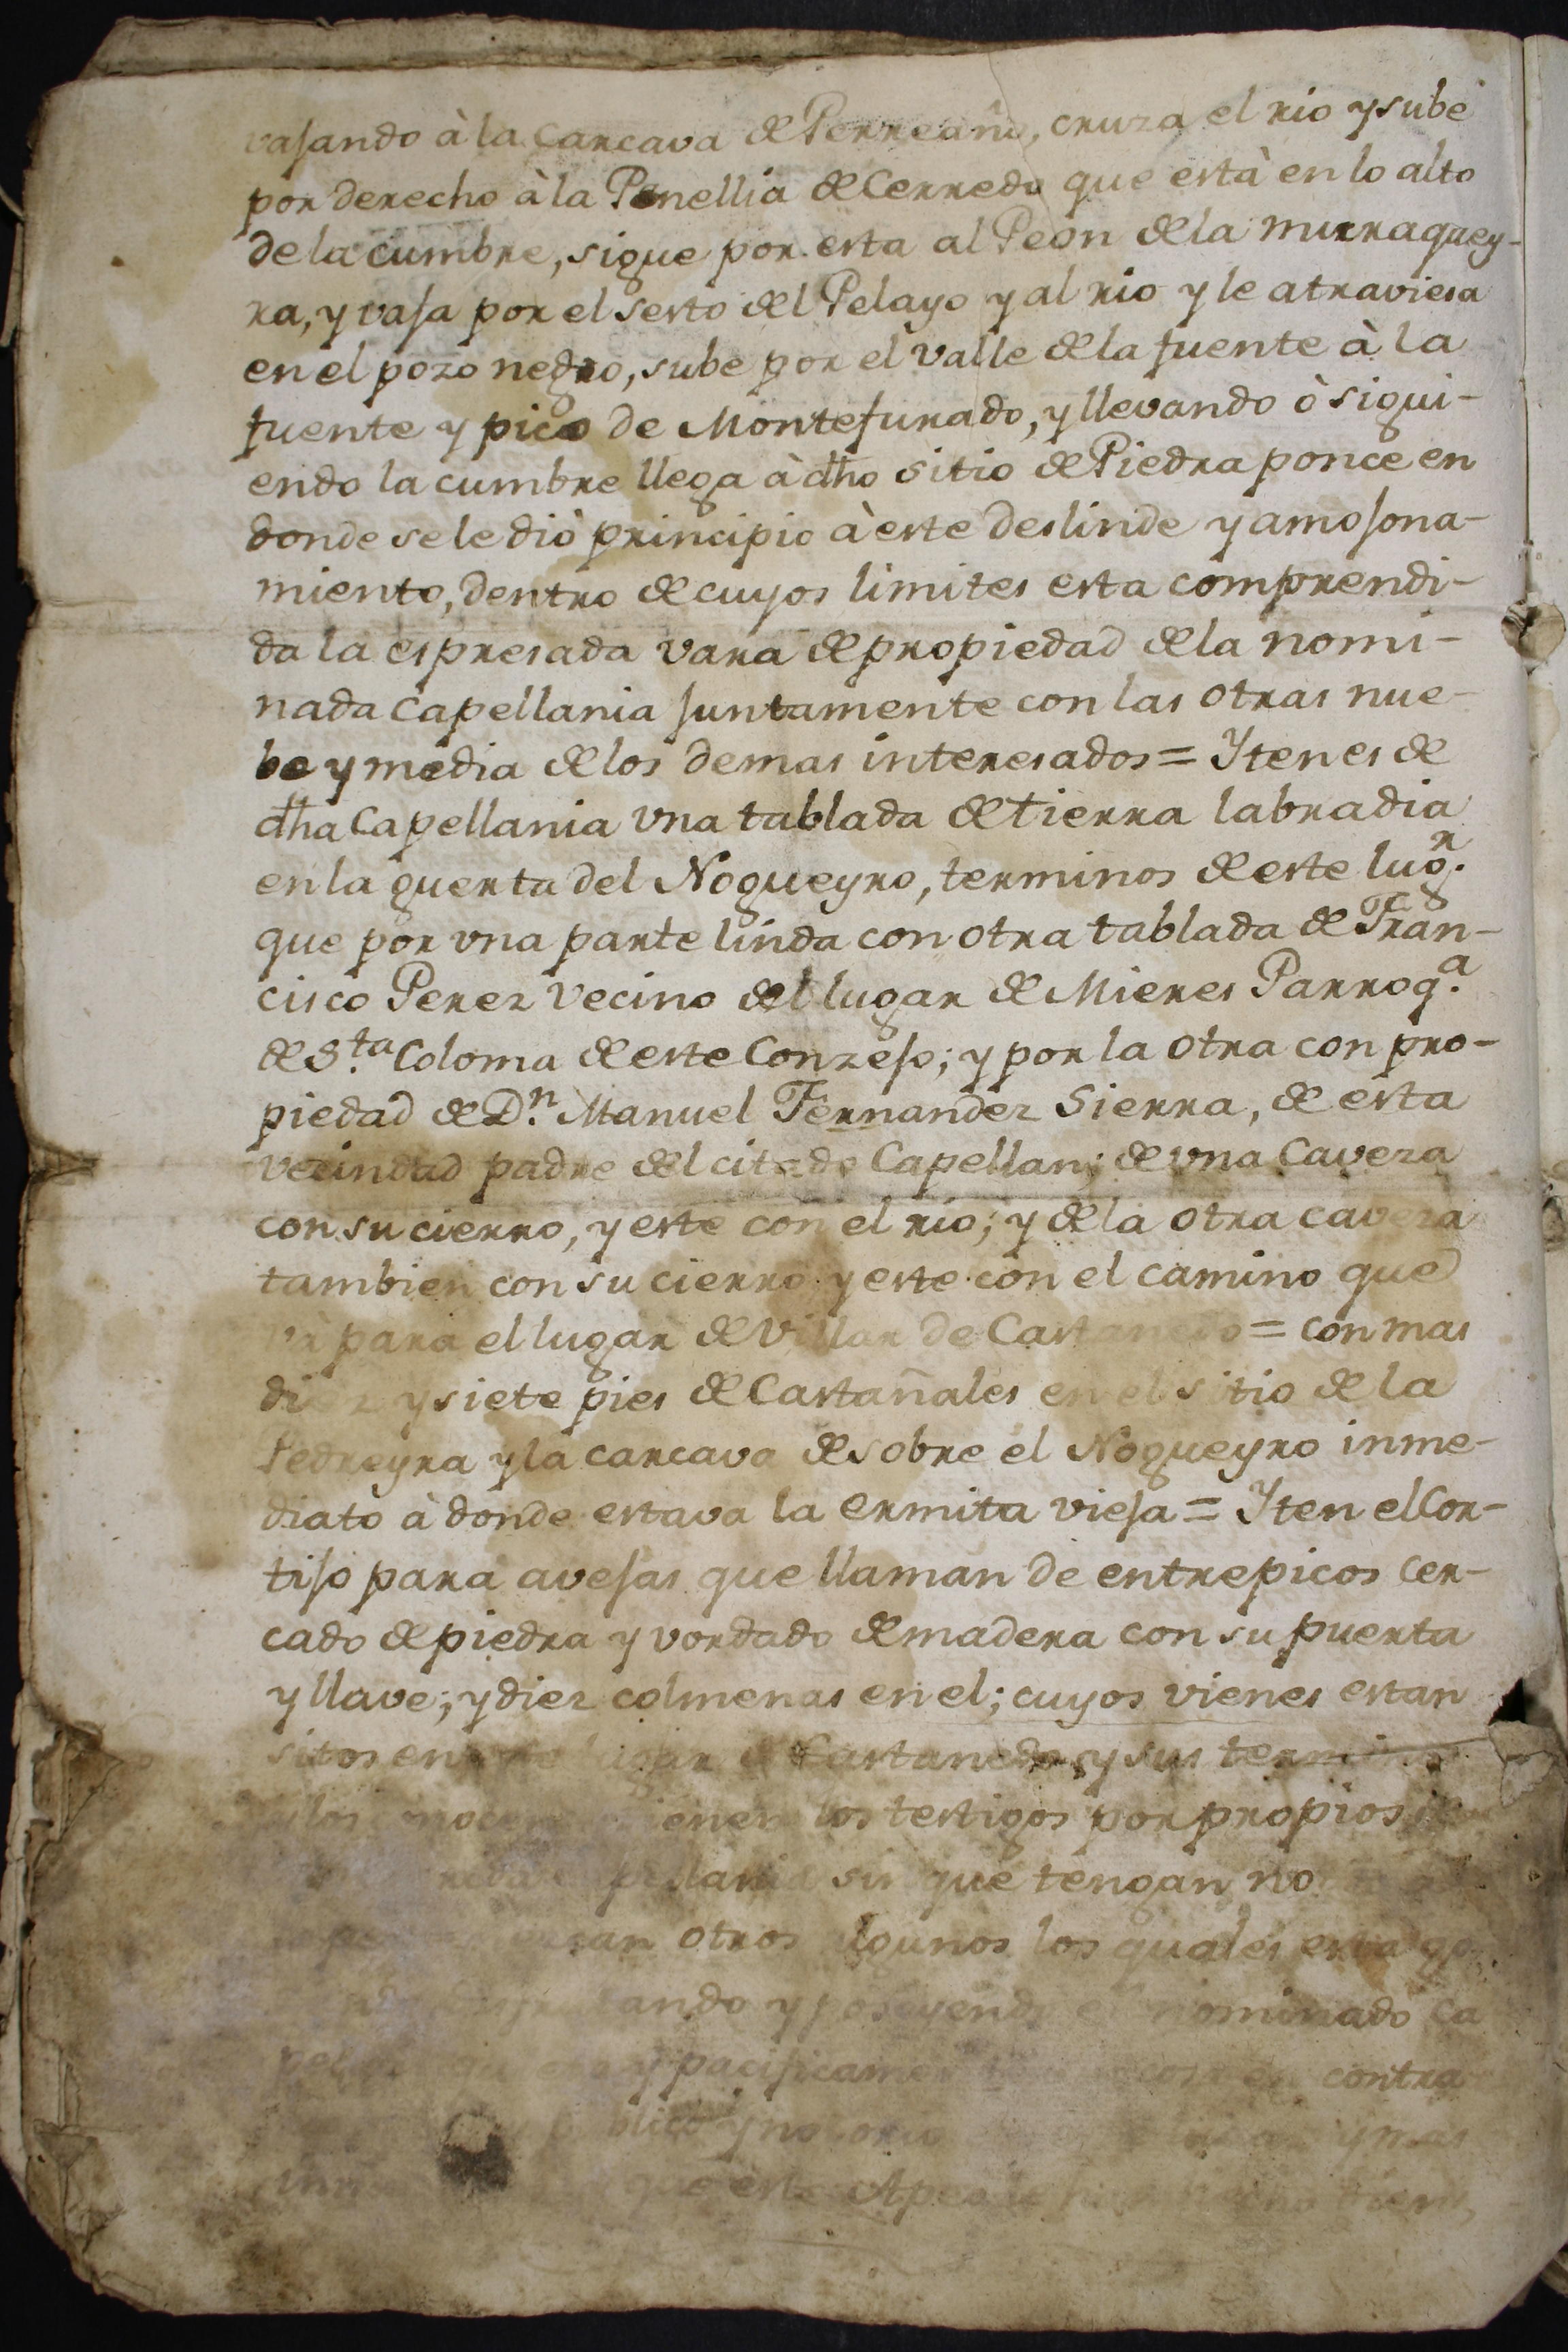 vajando à la Carcava de Perreaño, cruza el rio y sube
por derecho à la Penellia de Cerredo que està en lo alto
de la cumbre, sigue por esta al Peon de la murraquey-
ra, y vaja por el sesto del Pelayo y al rio y le atraviesa
en el pozo negro, sube por el valle de la fuente à la
fuente y pico de Montefurado, y llevando ò sigui-
endo la cumbre llega à dho sitio de Piedra ponce en
donde se le diò principio à este deslinde y amojona-
miento, dentro de cuyos limites esta comprendi-
da la espresada vara de propiedad de la nomi-
nada Capellania juntamente con las otras nue-
be y media de los demas interesados = Yten es de
dha Capellania vna tablada de tierra labradia
en la guerta del Nogueyro, terminos de este lug.r
que por vna parte linda con otra tablada de Fran-
cisco Perez vecino del lugar de Mieres Parroq.a
de S.ta Coloma de este Conzejo; y por la otra con pro-
piedad de D.n Manuel Fernandez Sierra, de esta
vecindad padre del citado Capellan; de vna Caveza
con su cierro, y este con el rio; y de la otra caveza
tambien con su cierro y este con el camino que
và para el lugar de Villar de Castanedo = con mas
diez y siete pies de Castañales en el sitio de la
Pedreyra y la carcava de sobre el Nogueyro inme-
diato à donde estava la ermita vieja = Yten el Cor-
tijo para avejas que llaman de entrepicos cer-
cado de piedra y vordado de madera con su puerta
y llave; y diez colmenas en el; cuyos vienes estan
sitos en este lugar de Castanedo y sus terminos
los testigos por propios
Capellania sin que tengan no
otros algunos los quales esta go
y poseyendo el nominado Ca
y pacificamente contra
publico y notorio y mas
que este Apeo